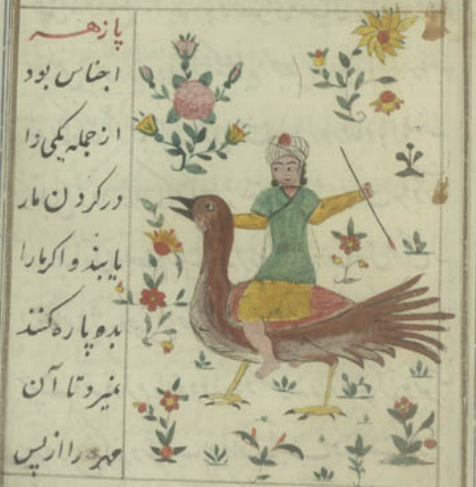 پازهر
اجناس بود
از جمله یکی را
در کردن مار
یابند و اکر مارا
بده پاره کنند
نمیرد تا آن
مهره را از پس